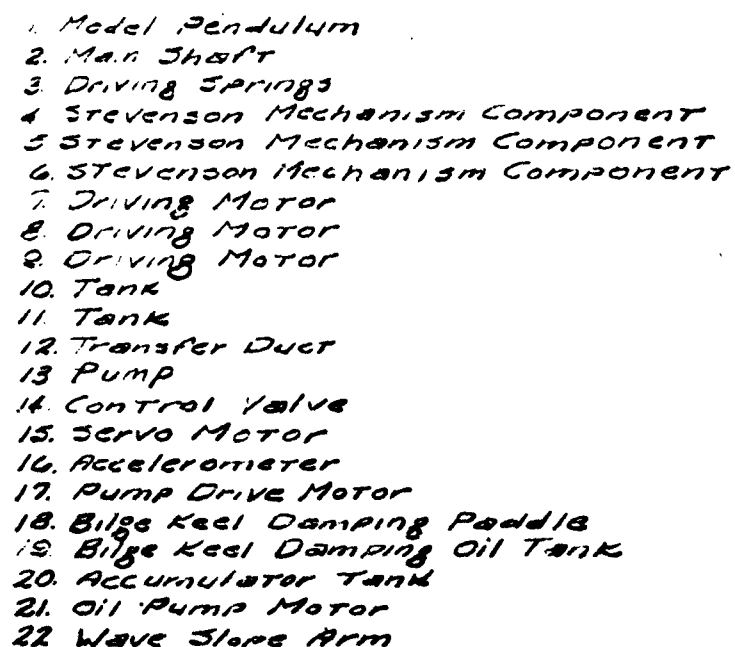 1. Model Pendulum
2. Main Shaft
3. Driving Springs
4 Stevenson Mechanism Component
5 Stevenson Mechanism Component
6. Stevenson Mechanism Component
7. Driving Motor
8. Driving Motor
9. Driving Motor
10. Tank
11. Tank
12. Transfer Duct
13 Pump
14. Control Valve
15. Servo Motor
16. Accelerometer
17. Pump Drive Motor
18. Bilge Keel Damping Paddle
19. Bilge Keel Damping Oil Tank
20. Accumulator Tank
21. Oil Pump Motor
22 Wave Slope Arm